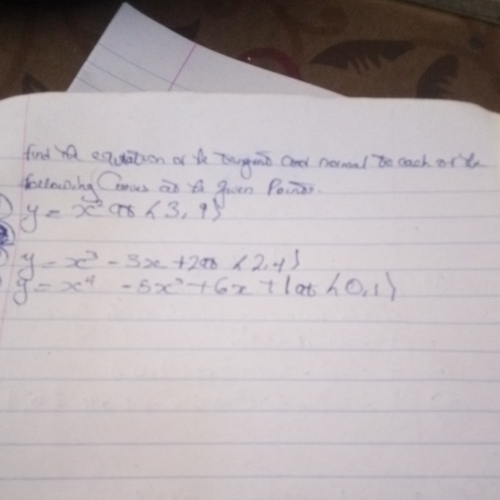 find the equation of the tangent and normal to each of the
following Curves at the given Points.
y = x² at {3, 9}
y = x³ - 3x + 2 at {2, 4}
y = x⁴ - 5x² + 6x + 1 at {0, 1}